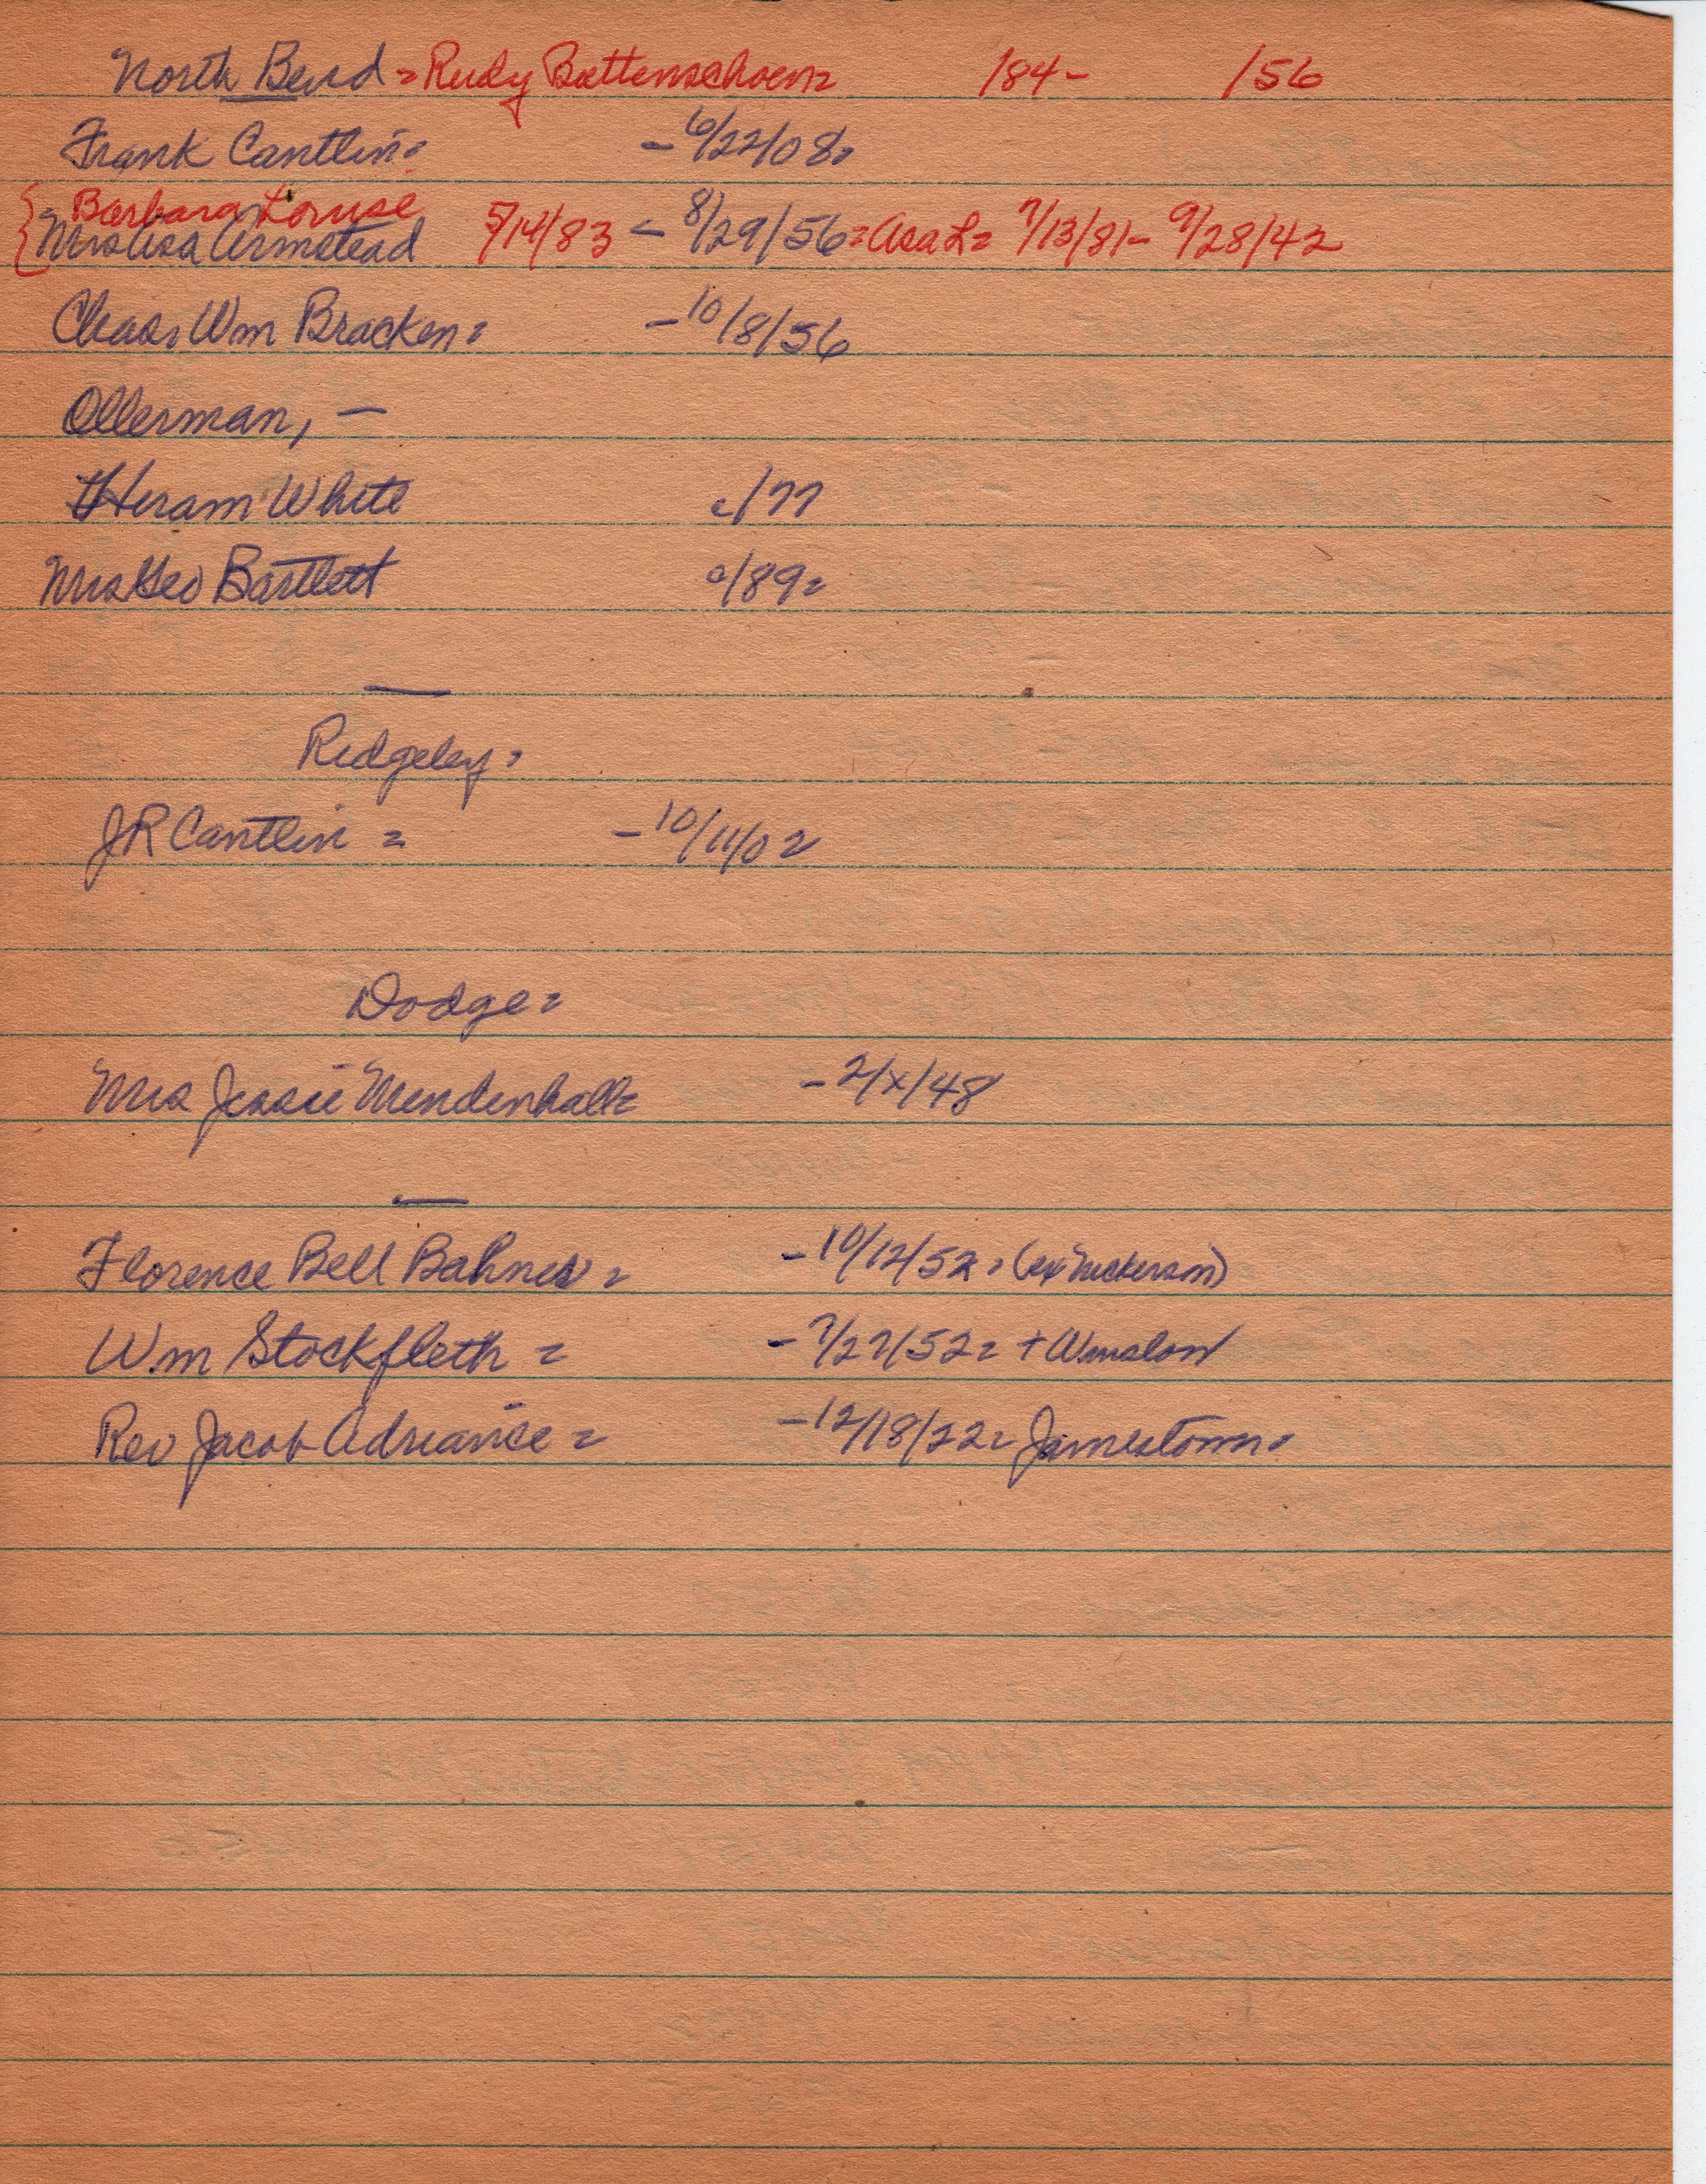 North Bend = Rudy Bottenschoen = /84 - /56
Frank Cantlin = - 6/22/08 =
Barbara Louise
Mrs Asa Armstead 5/14/83 - 8/29/56 = Asa L = 7/13/81 - 9/28/42
Chas. Wm Bracken = - 10/8/56
Ollerman, -
Hiram White c/77
Mrs Geo Bartlett c/89 =
Ridgeley =
JR Cantlin = - 10/11/02
Dodge =
Mrs Jessie Mendenhall = - 2/x/48
Florence Bell Bahnes = - 10/12/52 = (ex Nickerson)
Wm Stockfleth = - 7/27/52 = + Winslow
Rev Jacob Adriance = - 12/18/22 = Jamestown =